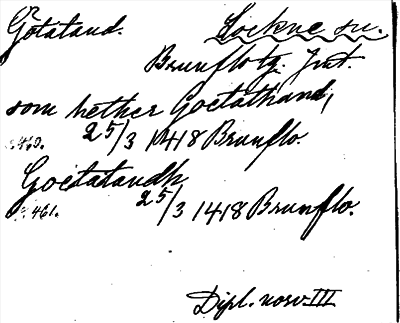 Götaland. Lockne sn.
Brunflo tg. Jmt.
som hether Goetathand,
s. 460. 25/3 1418 Brunflo.
Goetatandh
s. 461. 25/3 1418 Brunflo.
Dipl. norv. III